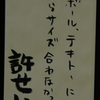 ボール、テキトーに
らサイズ合わなかっ
許せ